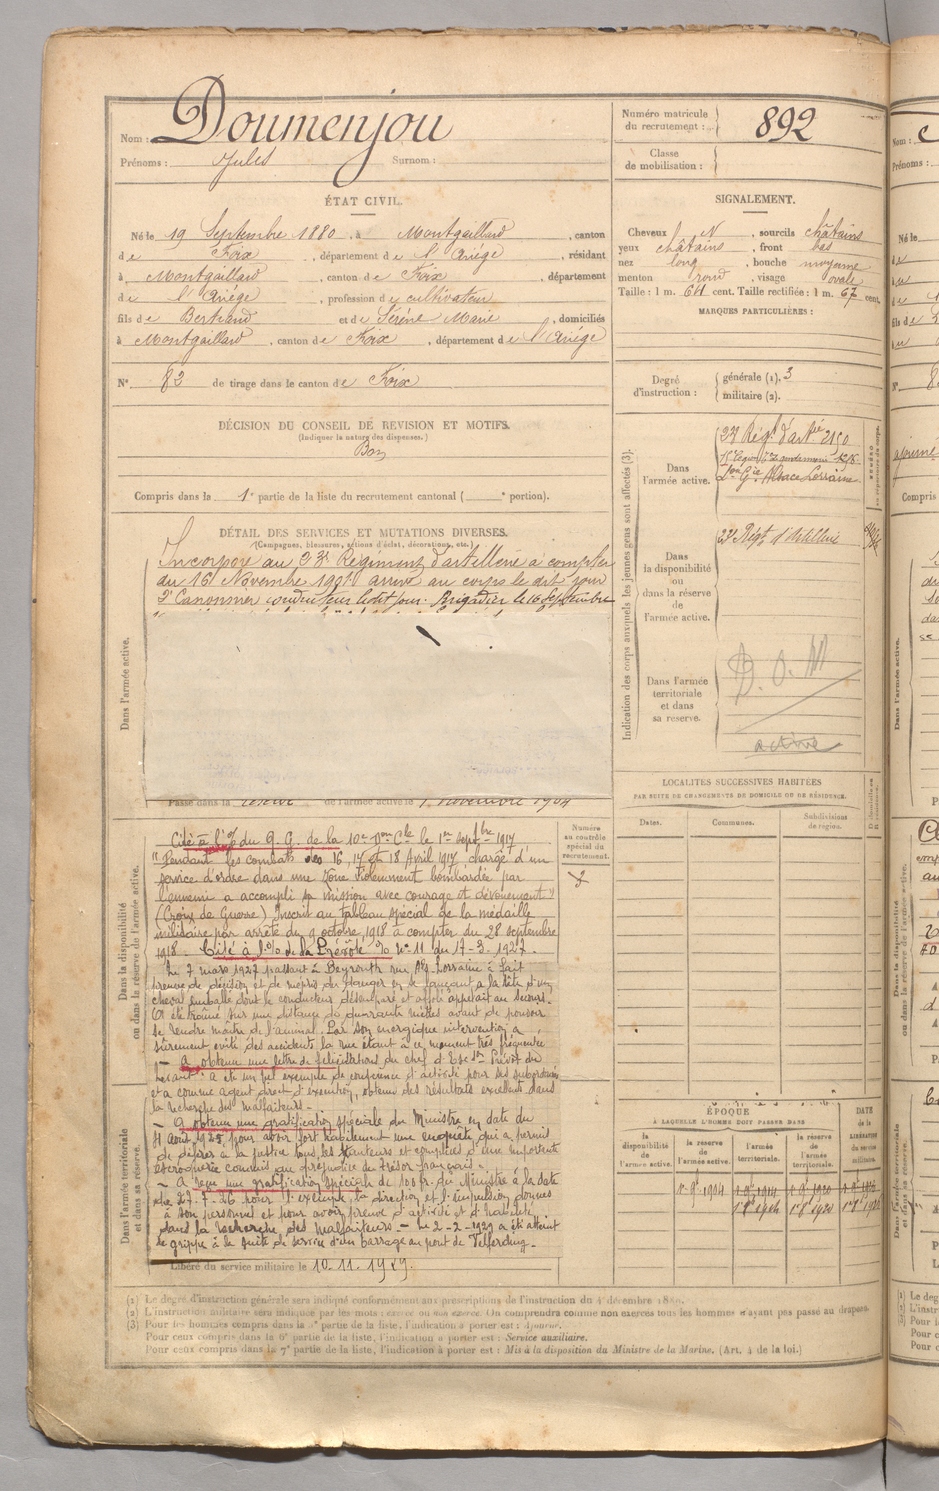 Nom : Doumenjou
Prénoms : Jules Surnom :
Numéro matricule du recrutement : 892
Classe de mobilisation :
ÉTAT CIVIL.
Né le 19 Septembre 1880, à Montgaillard, canton
de Foix, département de l'Ariége, résidant
à Montgaillard, canton de Foix, département
de l'Ariége, profession de cultivateur
fils de Bertrand et de Séréne Marie, domiciliés
à Montgaillard, canton de Foix, département de l'Ariége
N° 82 de tirage dans le canton de Foix
SIGNALEMENT.
Cheveux N, sourcils châtains
yeux châtains, front bas
nez long, bouche moyenne
menton rond, visage ovale
Taille : 1 m. 64 cent. Taille rectifiée : 1 m. 67 cent.
MARQUES PARTICULIÈRES :
Degré d'instruction : générale (1). 3
militaire (2).
DÉCISION DU CONSEIL DE REVISION ET MOTIFS.
(Indiquer la nature des dispenses.)
Bon
Compris dans la 1e partie de la liste du recrutement cantonal ( e portion).
DÉTAIL DES SERVICES ET MUTATIONS DIVERSES.
(Campagnes, blessures, actions d'éclat, décorations, etc.)
Incorporé au 23e Régiment d'artillerie à compter
du 16 Novembre 1901 arrivé au corps le dit jour
2e Canonnier conducteur le dit jour. Brigadier le 16 Septembre
Dans l'armée active.
Passé dans la réserve de l'armée active le 1 novembre 1904
Indication des corps auxquels les jeunes gens sont affectés (3).
Dans l'armée active.
23e Régt d'artie 2150
Alsace Lorraine
Dans la disponibilité ou dans la réserve de l'armée active.
23e Régt d'Artillerie
Dans l'armée territoriale et dans sa réserve.
D. O. M
active
LOCALITÉS SUCCESSIVES HABITÉES
PAR SUITE DE CHANGEMENTS DE DOMICILE OU DE RÉSIDENCE.
Dates. Communes. Subdivisions de région.
Numéro au contrôle spécial du recrutement.
Dans la disponibilité ou dans la réserve de l'armée active.
Cité à l'o/ du Q. G. de la 10e Don Cle le 1er Septbre 1917
"Pendant les combats des 16, 17 et 18 Avril 1917, chargé d'un
service d'ordre dans une zone violemment bombardée par
l'ennemi a accompli sa mission avec courage et dévouement"
(Croix de Guerre) Inscrit au tableau spécial de la médaille
militaire par arrêté du 9 octobre 1918 à compter du 28 septembre
1918. Cité à l'o/o de la Prévôté No 11 du 17-3-1927.
Le 7 mars 1927 passant à Beyrouth rue Als. Lorraine à fait
preuve de décision et de mépris du danger en se lançant à la tête d'un
cheval emballé dont le conducteur désemparé et affolé appelait au secours.
A été traîné sur une distance de quarante mètres avant de pouvoir
se rendre maître de l'animal. Par son énergique intervention a
sûrement évité des accidents la rue étant à ce moment très fréquentée
— A obtenu une lettre de félicitations du chef d'Esc. Prévôt du
Levant. a été un bel exemple de conscience et d'activité pour ses subordonnés
et a comme agent direct d'exécution, obtenu des résultats excellents dans
la recherche des malfaiteurs.
Dans l'armée territoriale et dans sa réserve.
— A obtenu une gratification spéciale du Ministre en date du
Août 1925 pour avoir fort habilement une enquête qui a permis
de déférer à la justice tous les auteurs et complices d'une importante
escroquerie commise au préjudice du trésor français.
— A reçu une gratification spéciale de 100 fr. du Ministre à la date
du 27-7-26 pour l'exemple, la direction et l'impulsion données
à son personnel et pour avoir preuve d'activité et d'habileté
dans la recherche des malfaiteurs. — Le 2-2-1929 a été atteint
de grippe à la suite de service d'un barrage au pont de
Libéré du service militaire le 10.11.1929.
ÉPOQUE
À LAQUELLE L'HOMME DOIT PASSER DANS
la disponibilité de l'armée active. la réserve de l'armée active. l'armée territoriale. la réserve de l'armée territoriale. DATE de la LIBÉRATION du service militaire.
1e 9bre 1904
(1) Le degré d'instruction générale sera indiqué conformément aux prescriptions de l'instruction du 4 décembre 1889.
(2) L'instruction militaire sera indiquée par les mots : exercé ou non exercé. On comprendra comme non exercés tous les hommes n'ayant pas passé au drapeau.
(3) Pour les hommes compris dans la 5e partie de la liste, l'indication à porter est : Ajourné.
Pour ceux compris dans la 6e partie de la liste, l'indication à porter est : Service auxiliaire.
Pour ceux compris dans la 7e partie de la liste, l'indication à porter est : Mis à la disposition du Ministre de la Marine. (Art. 4 de la loi.)